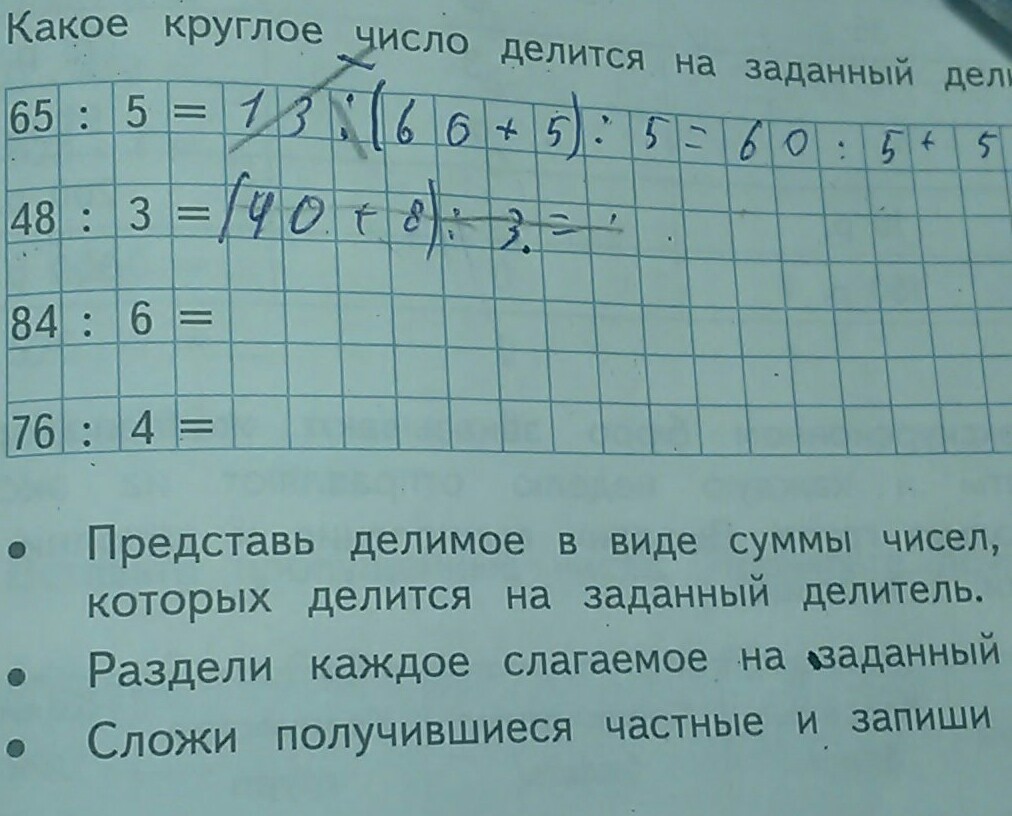 Какое круглое число делится на заданный дели
65 : 5 = 13 : (60 + 5) : 5 = 60 : 5 + 5
48 : 3 = (40 + 8) : 3 =
84 : 6 =
76 : 4 =
• Представь делимое в виде суммы чисел,
которых делится на заданный делитель.
• Раздели каждое слагаемое на заданный
• Сложи получившиеся частные и запиши